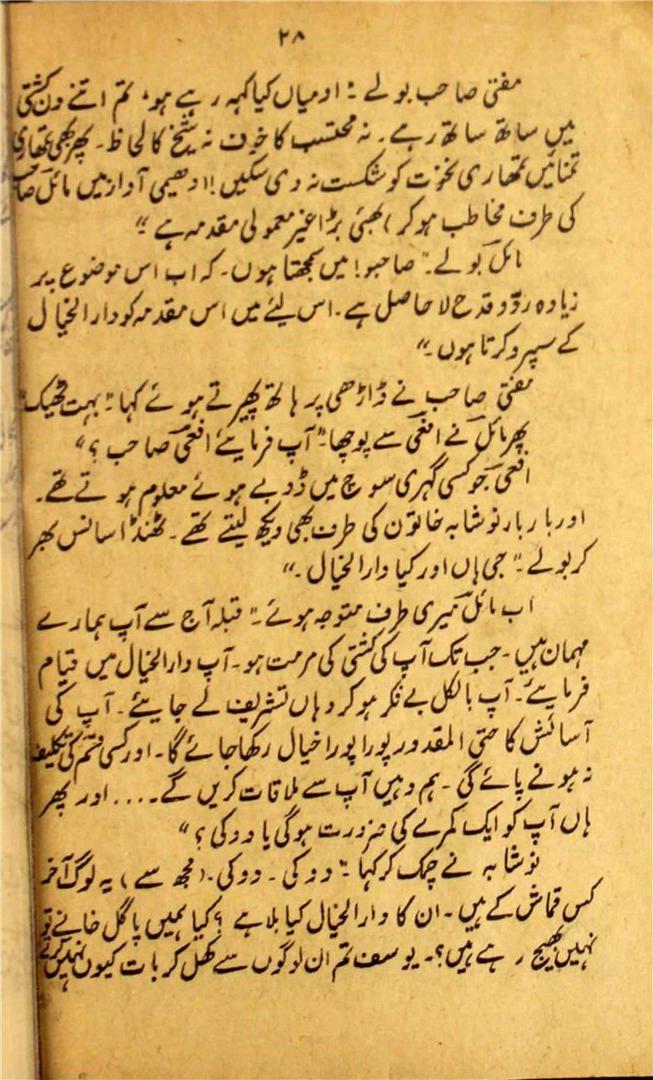 ۲۸
مفتی صاحب بولے : او میاں کیا کہہ رہے ہو، تم اتنے دن کشتی
میں ساتھ ساتھ رہے۔ نہ محتسب کا خوف نہ شیخ کا لحاظ۔ پھر بھی تمھاری
تمنائیں تمھاری نخوت کو شکست نہ دی سکیں! (دھیمی آواز میں مائل صاحب
کی طرف مخاطب ہو کر) بھئی بڑا غیر معمولی مقدمہ ہے "
مائل بولے۔ "صاحبو! میں سمجھتا ہوں۔ کہ اب اس موضوع پر
زیادہ ردّ و قدح لا حاصل ہے۔ اس لیئے میں اس مقدمہ کو دار الخیال
کے سپرد کرتا ہوں۔"
مفتی صاحب نے ڈاڑھی پر ہاتھ پھیرتے ہوئے کہا۔ "بہت ٹھیک"
پھر مائل نے افعی سے پوچھا۔ "آپ فرمایئے افعی صاحب ؟"
افعی جو کسی گہری سوچ میں ڈوبے ہوئے معلوم ہوتے تھے۔
اور بار بار نوشابہ خاتون کی طرف بھی دیکھ لیتے تھے۔ ٹھنڈا سانس بھر
کر بولے۔ "جی ہاں اور کیا دار الخیال۔"
اب مائل میری طرف متوجہ ہوئے۔ "قبلہ آج سے آپ ہمارے
مہمان ہیں۔ جب تک آپ کی کشتی کی مرمت ہو۔ آپ دار الخیال میں قیام
فرمایئے۔ آپ بالکل بے فکر ہو کر وہاں تشریف لے جایئے۔ آپ کی
آسائش کا حتی المقدور پورا پورا خیال رکھا جائے گا۔ اور کسی قسم کی تکلیف
نہ ہونے پائے گی۔ ہم وہیں آپ سے ملاقات کریں گے۔.... اور پھر
ہاں آپ کو ایک کمرے کی ضرورت ہوگی یا دو کی ؟"
نوشابہ نے چمک کر کہا۔ "دو کی۔ دو کی۔ (مجھ سے) یہ لوگ آخر
کس قماش کے ہیں۔ ان کا دار الخیال کیا بلا ہے ؟ کیا ہمیں پاگل خانے تو
نہیں بھیج رہے ہیں؟۔ یوسف تم ان لوگوں سے کھل کر بات کیوں نہیں کرتے